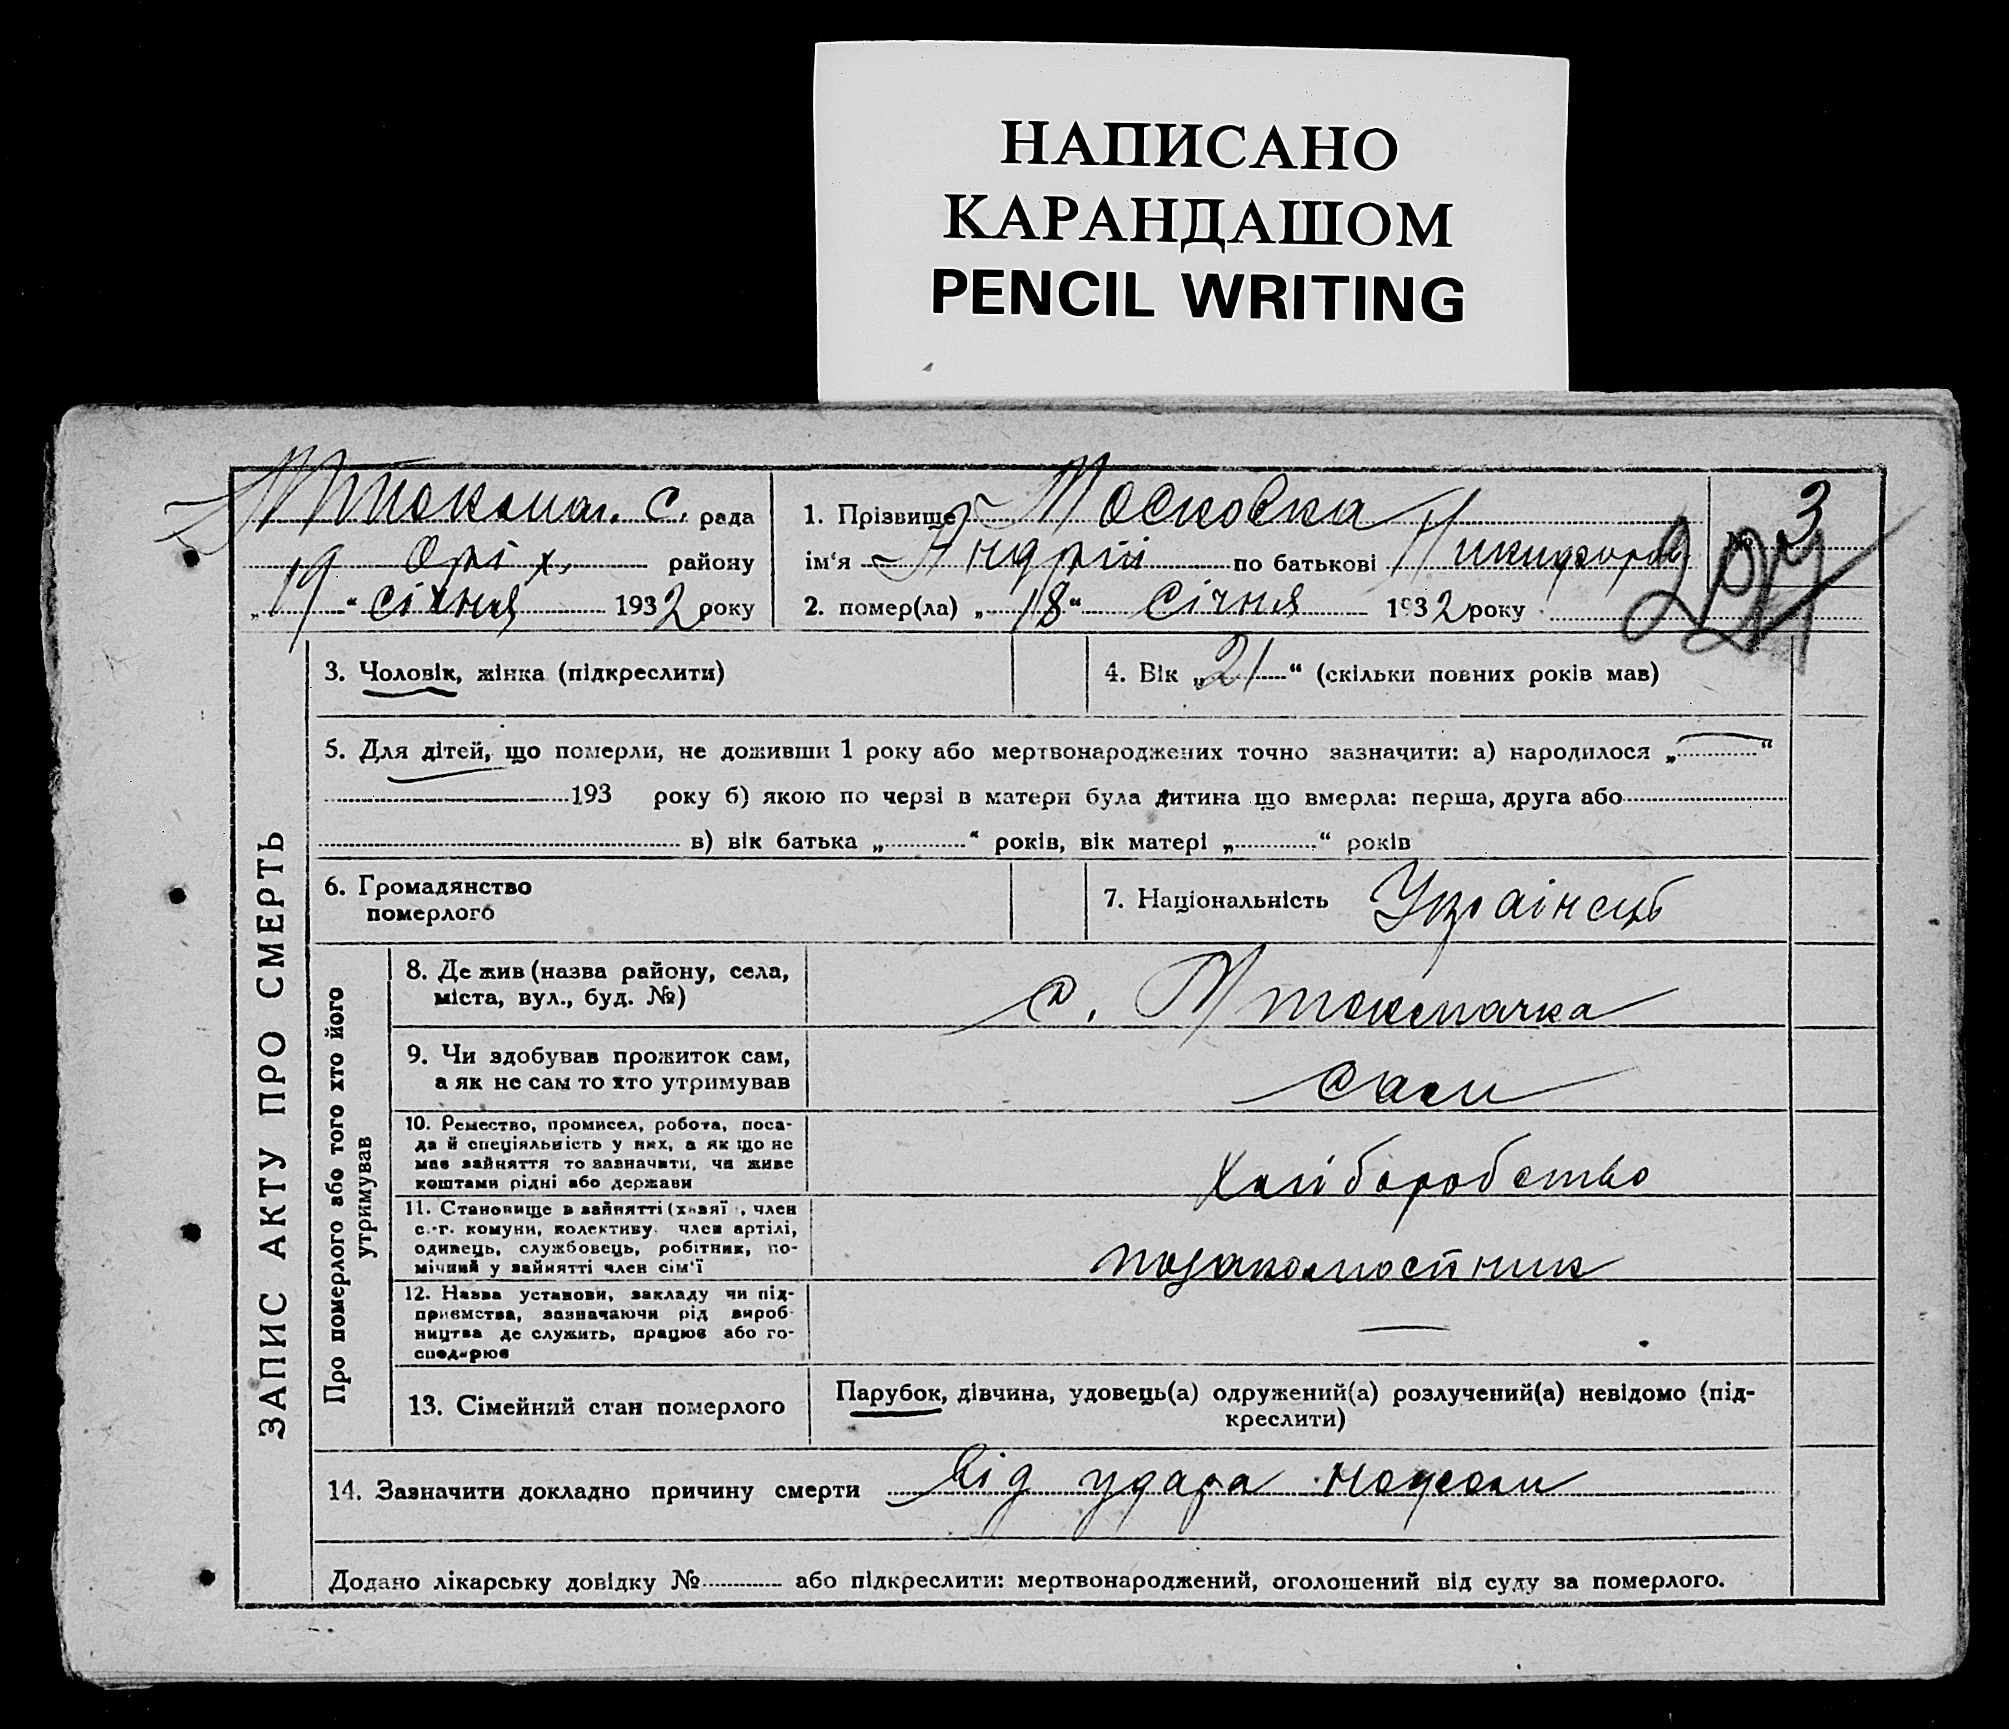 НАПИСАНО
КАРАНДАШОМ
PENCIL WRITING
МТокмац. с. рада
Оріх. району
„19" січня 1932 року
1. Прізвище Московка
ім'я Андрій по батькові Никифоров
2. помер(ла) „18" січня 1932 року
№ 3
ЗАПИС АКТУ ПРО СМЕРТЬ
3. Чоловік, жінка (підкреслити)
4. Вік „21" (скільки повних років мав)
5. Для дітей, що померли, не доживши 1 року або мертвонароджених точно зазначити: а) народилося „ "
193 року б) якою по черзі в матери була дитина що вмерла: перша, друга або
в) вік батька „ " років, вік матері „ " років
6. Громадянство
померлого
7. Національність Українець
Про померлого або того хто його
утримував
8. Де жив (назва району, села,
міста, вул., буд. №)
с. МТокмачка
9. Чи здобував прожиток сам,
а як не сам то хто утримував
сам
10. Ремество, промисел, робота, поса-
да й спеціяльність у них, а як що не
має зайняття то зазначити, чи живе
коштами рідні або держави
Хліборобство
11. Становище в зайнятті (хазяї , член
с.-г. комуни, колективу, член артілі,
одинець, службовець, робітник, по-
мічний у зайнятті член сім'ї
12. Назва установи, закладу чи під-
приємства, зазначаючи рід вироб-
ництва де служить, працює або го-
сподарює
—
13. Сімейний стан померлого
Парубок, дівчина, удовець(а) одружений(а) розлучений(а) невідомо (під-
креслити)
14. Зазначити докладно причину смерти від удара ножом
Додано лікарську довідку № або підкреслити: мертвонароджений, оголошений від суду за померлого.